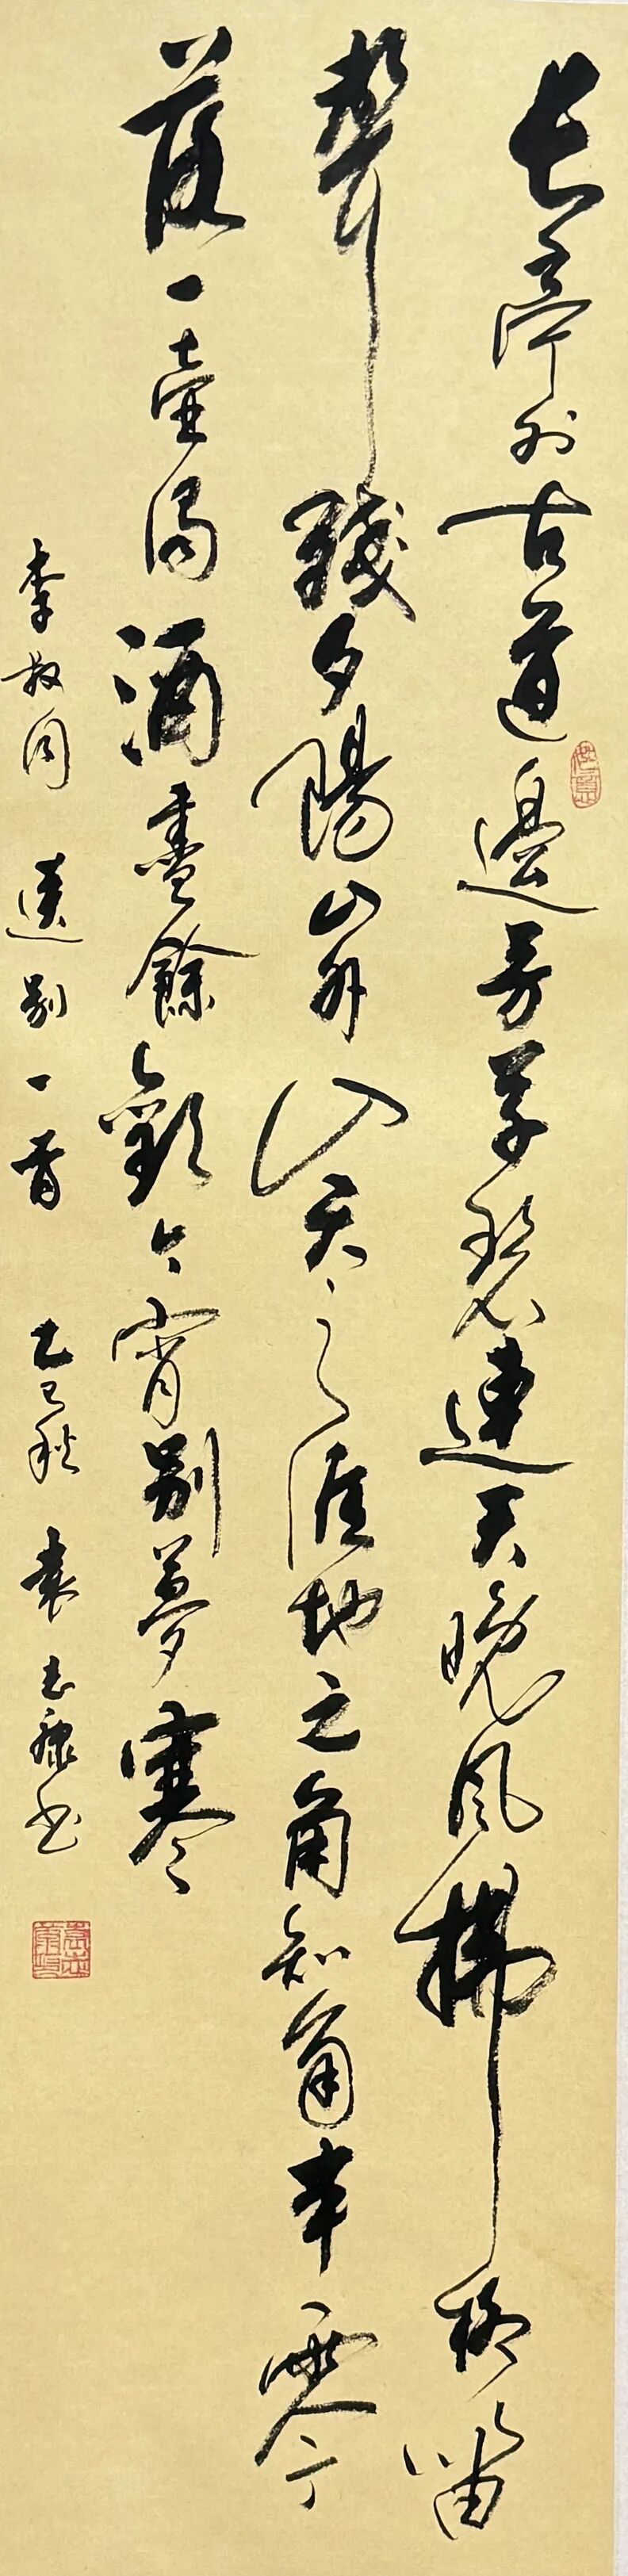 長亭外古道邊芳草碧連天晚風拂柳笛
聲殘夕陽山外山天之涯地之角知角半零
落一壺濁酒盡餘歡今宵別夢寒
李叔同 送別一首 乙巳秋 袁志康书